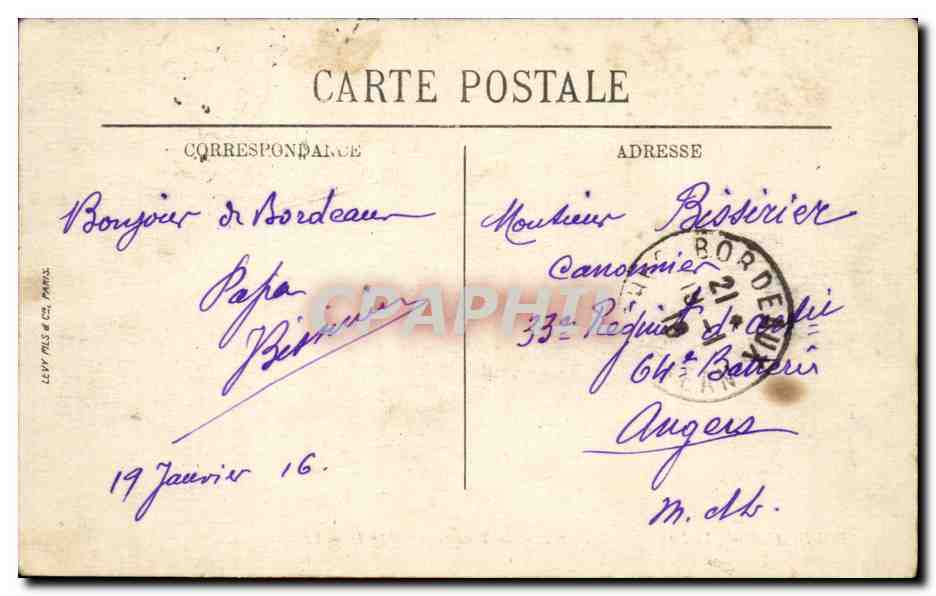 CARTE POSTALE
CORRESPONDANCE
ADRESSE
Bonjour de Bordeaux
Papa
Bisserier
19 Janvier 16.
LEVY FILS & Cie, PARIS.
Monsieur Bisserier
Canonnier
33e Regimt d'artie
64e Batterie
Angers
M. et L.
BORDEAUX
21
19 - 1
16
CAPHIL